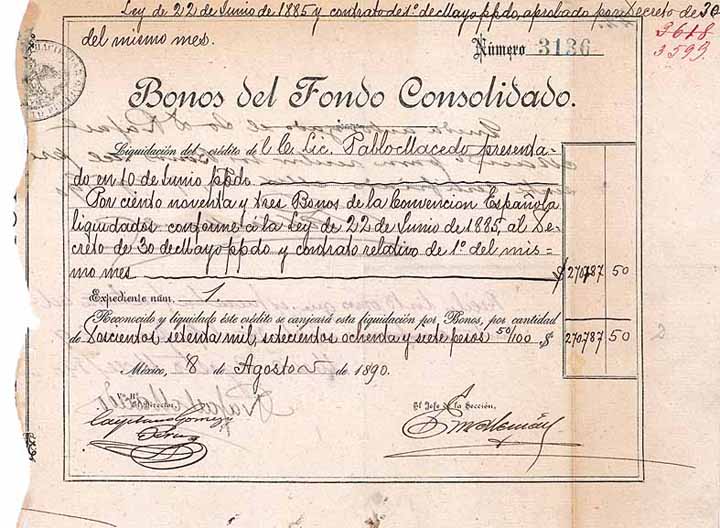 Ley de 22 de Junio de 1885 y contrato de 1º de Mayo ppdo, aprobado por Decreto de 30
del mismo mes.
3618
3599
Número 3136
Bonos del Fondo Consolidado.
Liquidación del crédito de l C. Lic. Pablo Macedo presenta-
do en 10 de Junio ppdo.
Por ciento noventa y tres Bonos de la Convencion Española
liquidados conforme á la Ley de 22 de Junio de 1885, al De-
creto de 30 de Mayo ppdo y contrato relativo de 1º del mis-
mo mes $ 270,787 50
Expediente núm. 1.
Reconocido y liquidado éste crédito se canjeará esta liquidación por Bonos, por cantidad
de Doscientos setenta mil, setecientos ochenta y siete pesos 50/100 $ 270,787 50
México, 8 de Agosto de 1890.
El Director,
El Jefe de la Sección,